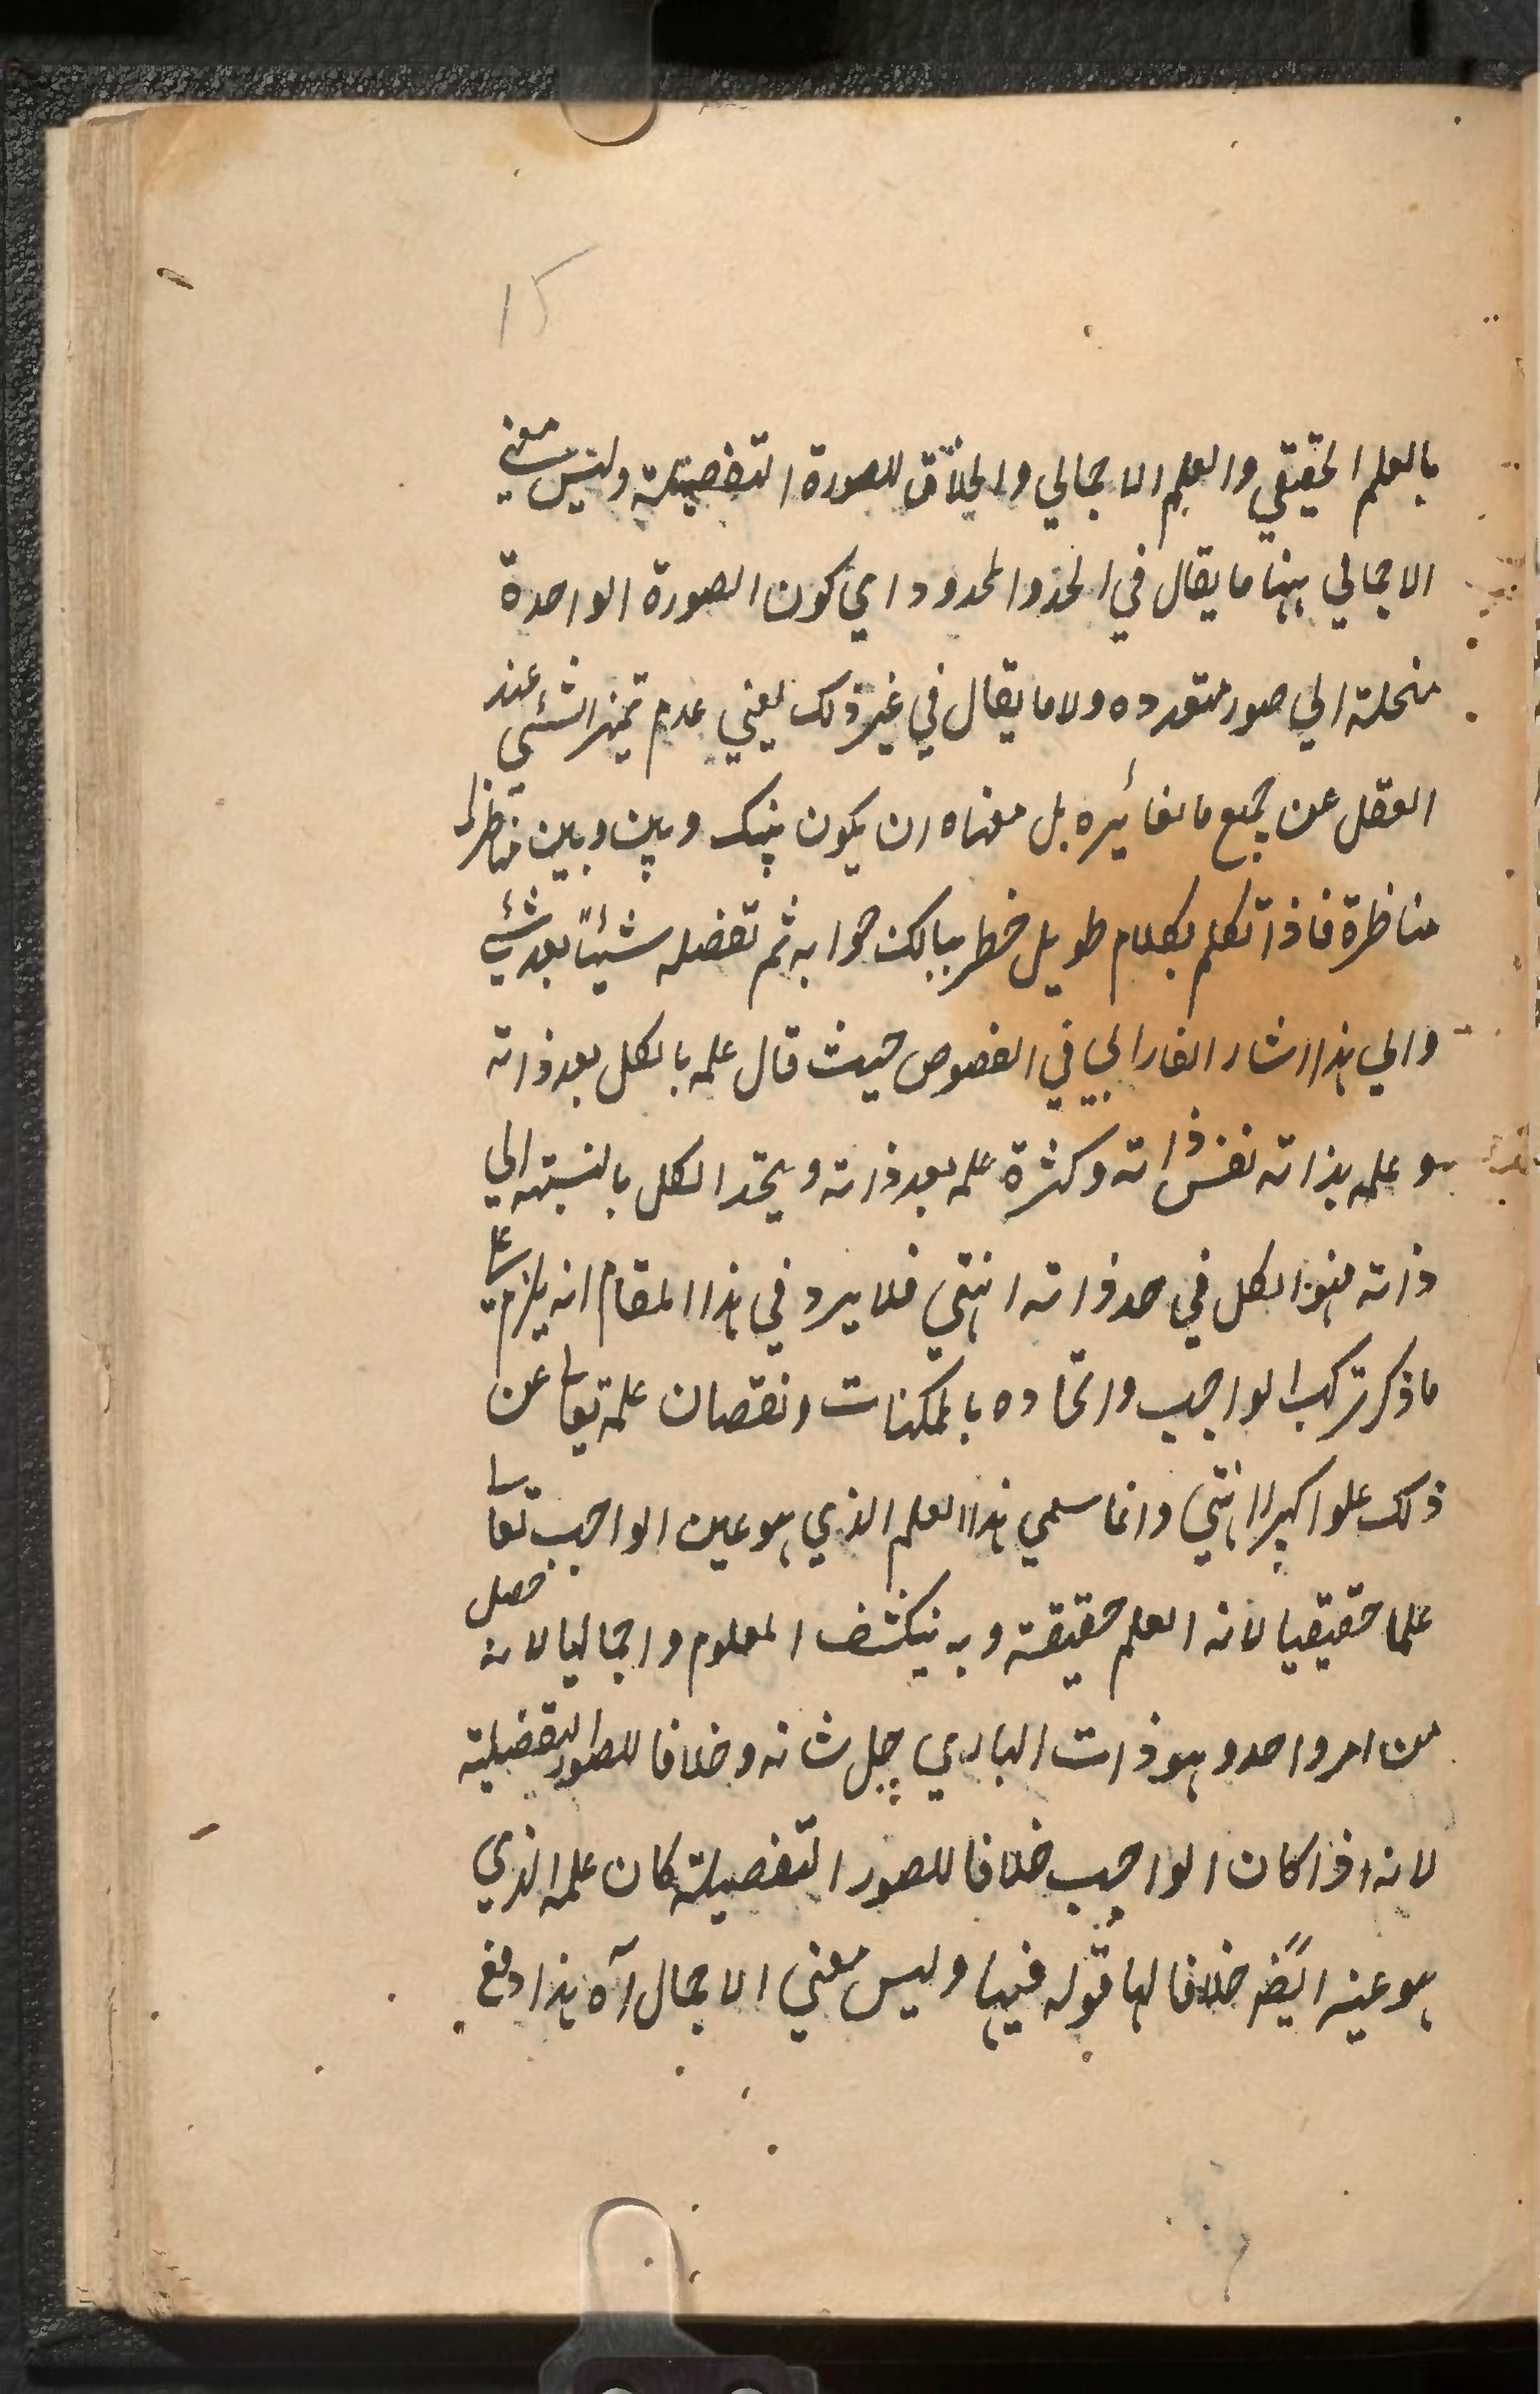 15
بالعلم الحقيقي والعلم الاجمالي والخلاق للصورة التفصيلية وليس معني
الاجمالي ههنا ما يقال في الحد والمحدود اي كون الصورة الواحدة
منحلة الي صور متعدده ولا ما يقال في غير ذلك يعني عدم تميز الشئي عند
العقل عن جميع ما يغائيره بل معناه ان يكون بينك وبين وبين مناظر
مناظرة فاذا تكلم بكلام طويل خطر ببالك جوابه ثم تفصله شيئاً بعد شئي
والي هذا اشار الفارابي في الفصوص حيث قال علمه بالكل بعد ذاته
هو علمه بذاته نفس ذاته وكثرة علمه بعد ذاته ويتحد الكل بالنسبته الي
ذاته فهو الكل في حد ذاته انتهي فلا يرد في هذا المقام انه يلزم علي
ما ذكر تركب الواجب واتحاده بالممكنات ونقصان علمه تعالي عن
ذلك علوا كبيرا انتهي وانما سمي هذا العلم الذي هو عين الواجب تعالي
علما حقيقيا لانه العلم حقيقته وبه ينكشف المعلوم واجماليا لانه حصل
من امر واحد وهو ذات الباري جل شانه وخلاقا للصور التفصيلية
لانه اذا كان الواجب خلاقا للصور التفصيلية كان علمه الذي
هو عينه ايضً خلاقا لها قوله فيها وليس معني الاجمال آه هذا دفع